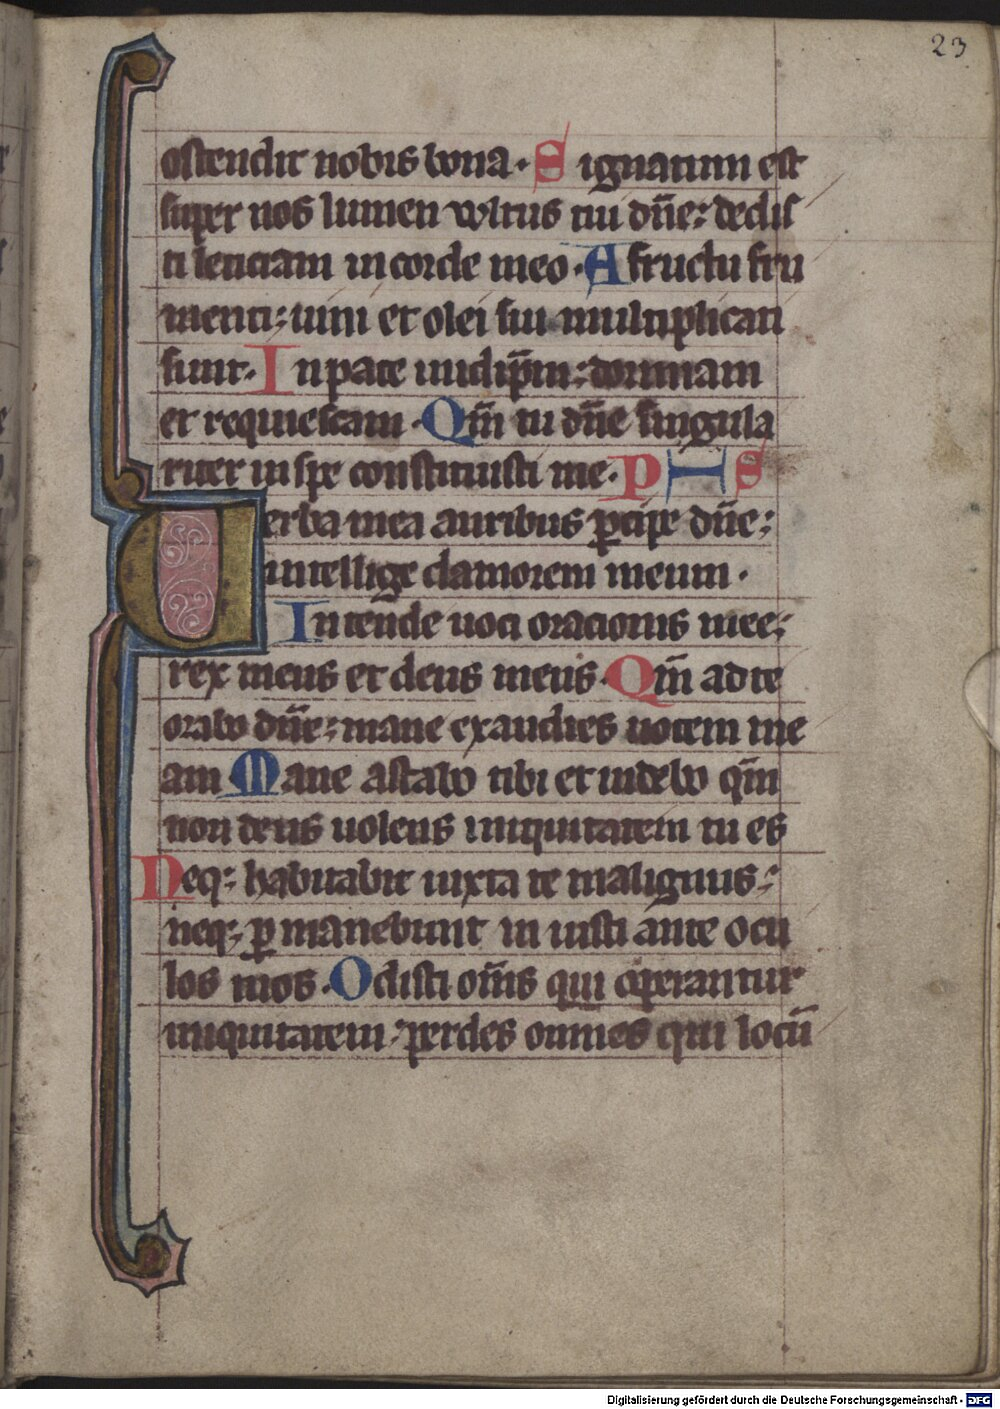 23
ostendit nobis bona. Signatum est
super nos lumen vvltus tui dn̄e: dedis
ti leticiam in corde meo. A fructu fru
menti: uini et olei sui multiplicati
sunt. In pace in idip̄m: dormiam
et requiescam. Qm̄ tu dn̄e singula
riter in spe constituisti me. PHS
Verba mea auribus ꝑcipe dn̄e:
intellige clamorem meum.
Intende uoci orationis mee:
rex meus et deus meus. Qm̄ ad te
orabo dn̄e: mane exaudies uocem me
am Mane astabo tibi et uidebo qm̄
non deus uolens iniquitatem tu es
Neq: habitabit iuxta te malignus:
neq: ꝑmanebunt iniusti ante ocu
los tuos. Odisti om̄s qui operantur
iniquitatem: perdes omnes qui locū
Digitalisierung gefördert durch die Deutsche Forschungsgemeinschaft - DFG